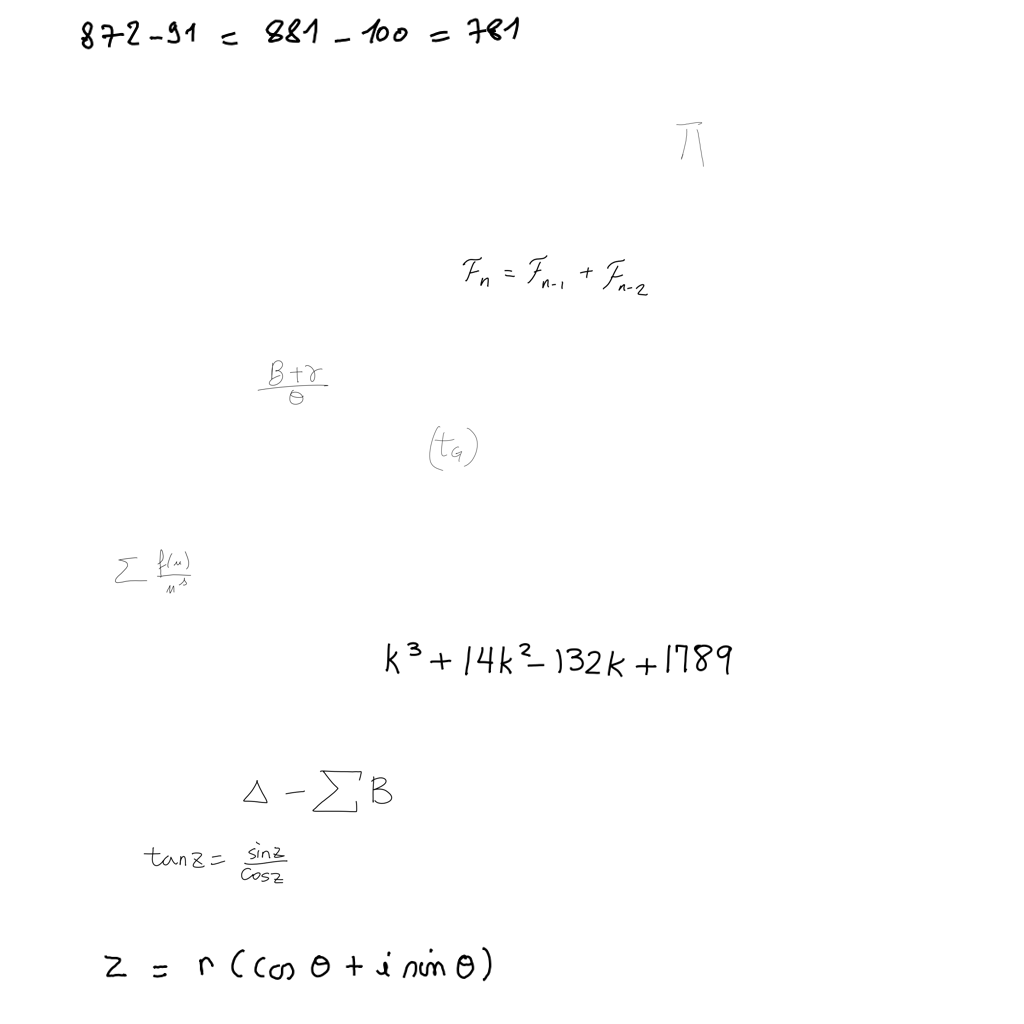 872-91 = 881 - 100 = 781
∏
F_n = F_{n-1} + F_{n-2}
\frac{B+γ}{θ}
(t_G)
∑ \frac{f(n)}{n^s}
k^3 + 14k^2 - 132k + 1789
Δ - ∑B
tan z = \frac{sin z}{cos z}
z = r (cos θ + i sin θ)